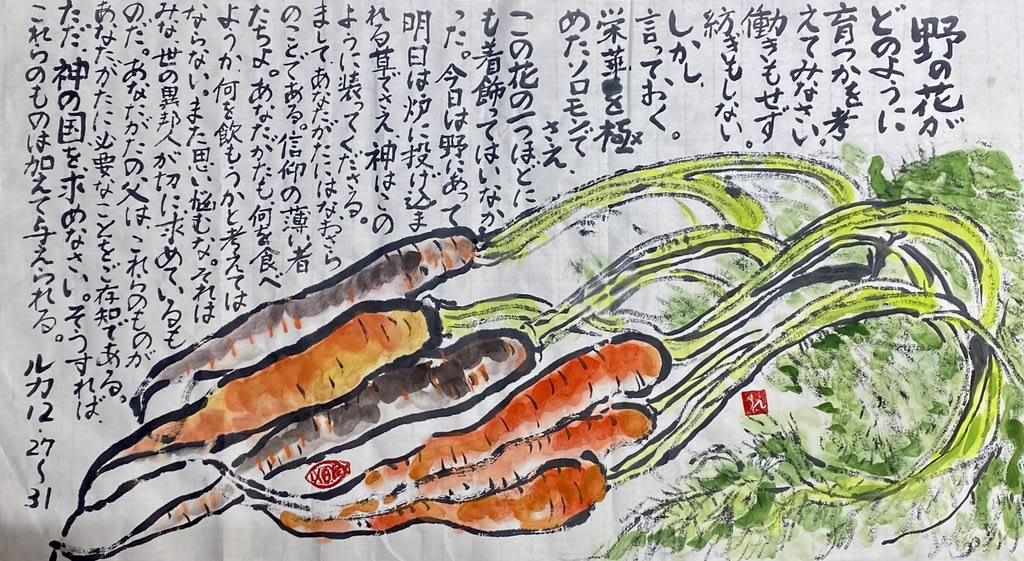 野の花が
どのように
育つかを考
えてみなさい。
働きもせず
紡ぎもしない。
しかし、
言っておく。
栄華を極
めたソロモンで
さえ、
この花の一つほどに
も着飾ってはいなか
った。今日は野にあって
明日は炉に投げ込ま
れる草でさえ、神はこの
ように装ってくださる。
まして、あなたがたにはなおさら
のことである。信仰の薄い者
たちよ。あなたがたも、何を食べ
ようか、何を飲もうかと考えては
ならない。また思い悩むな。それは
みな、世の異邦人が切に求めているも
のだ。あなたがたの父は、これらのものが
あなたがたに必要なことをご存知である。
ただ、神の国を求めなさい。そうすれば、
これらのものは加えて与えられる。
ルカ12.27〜31